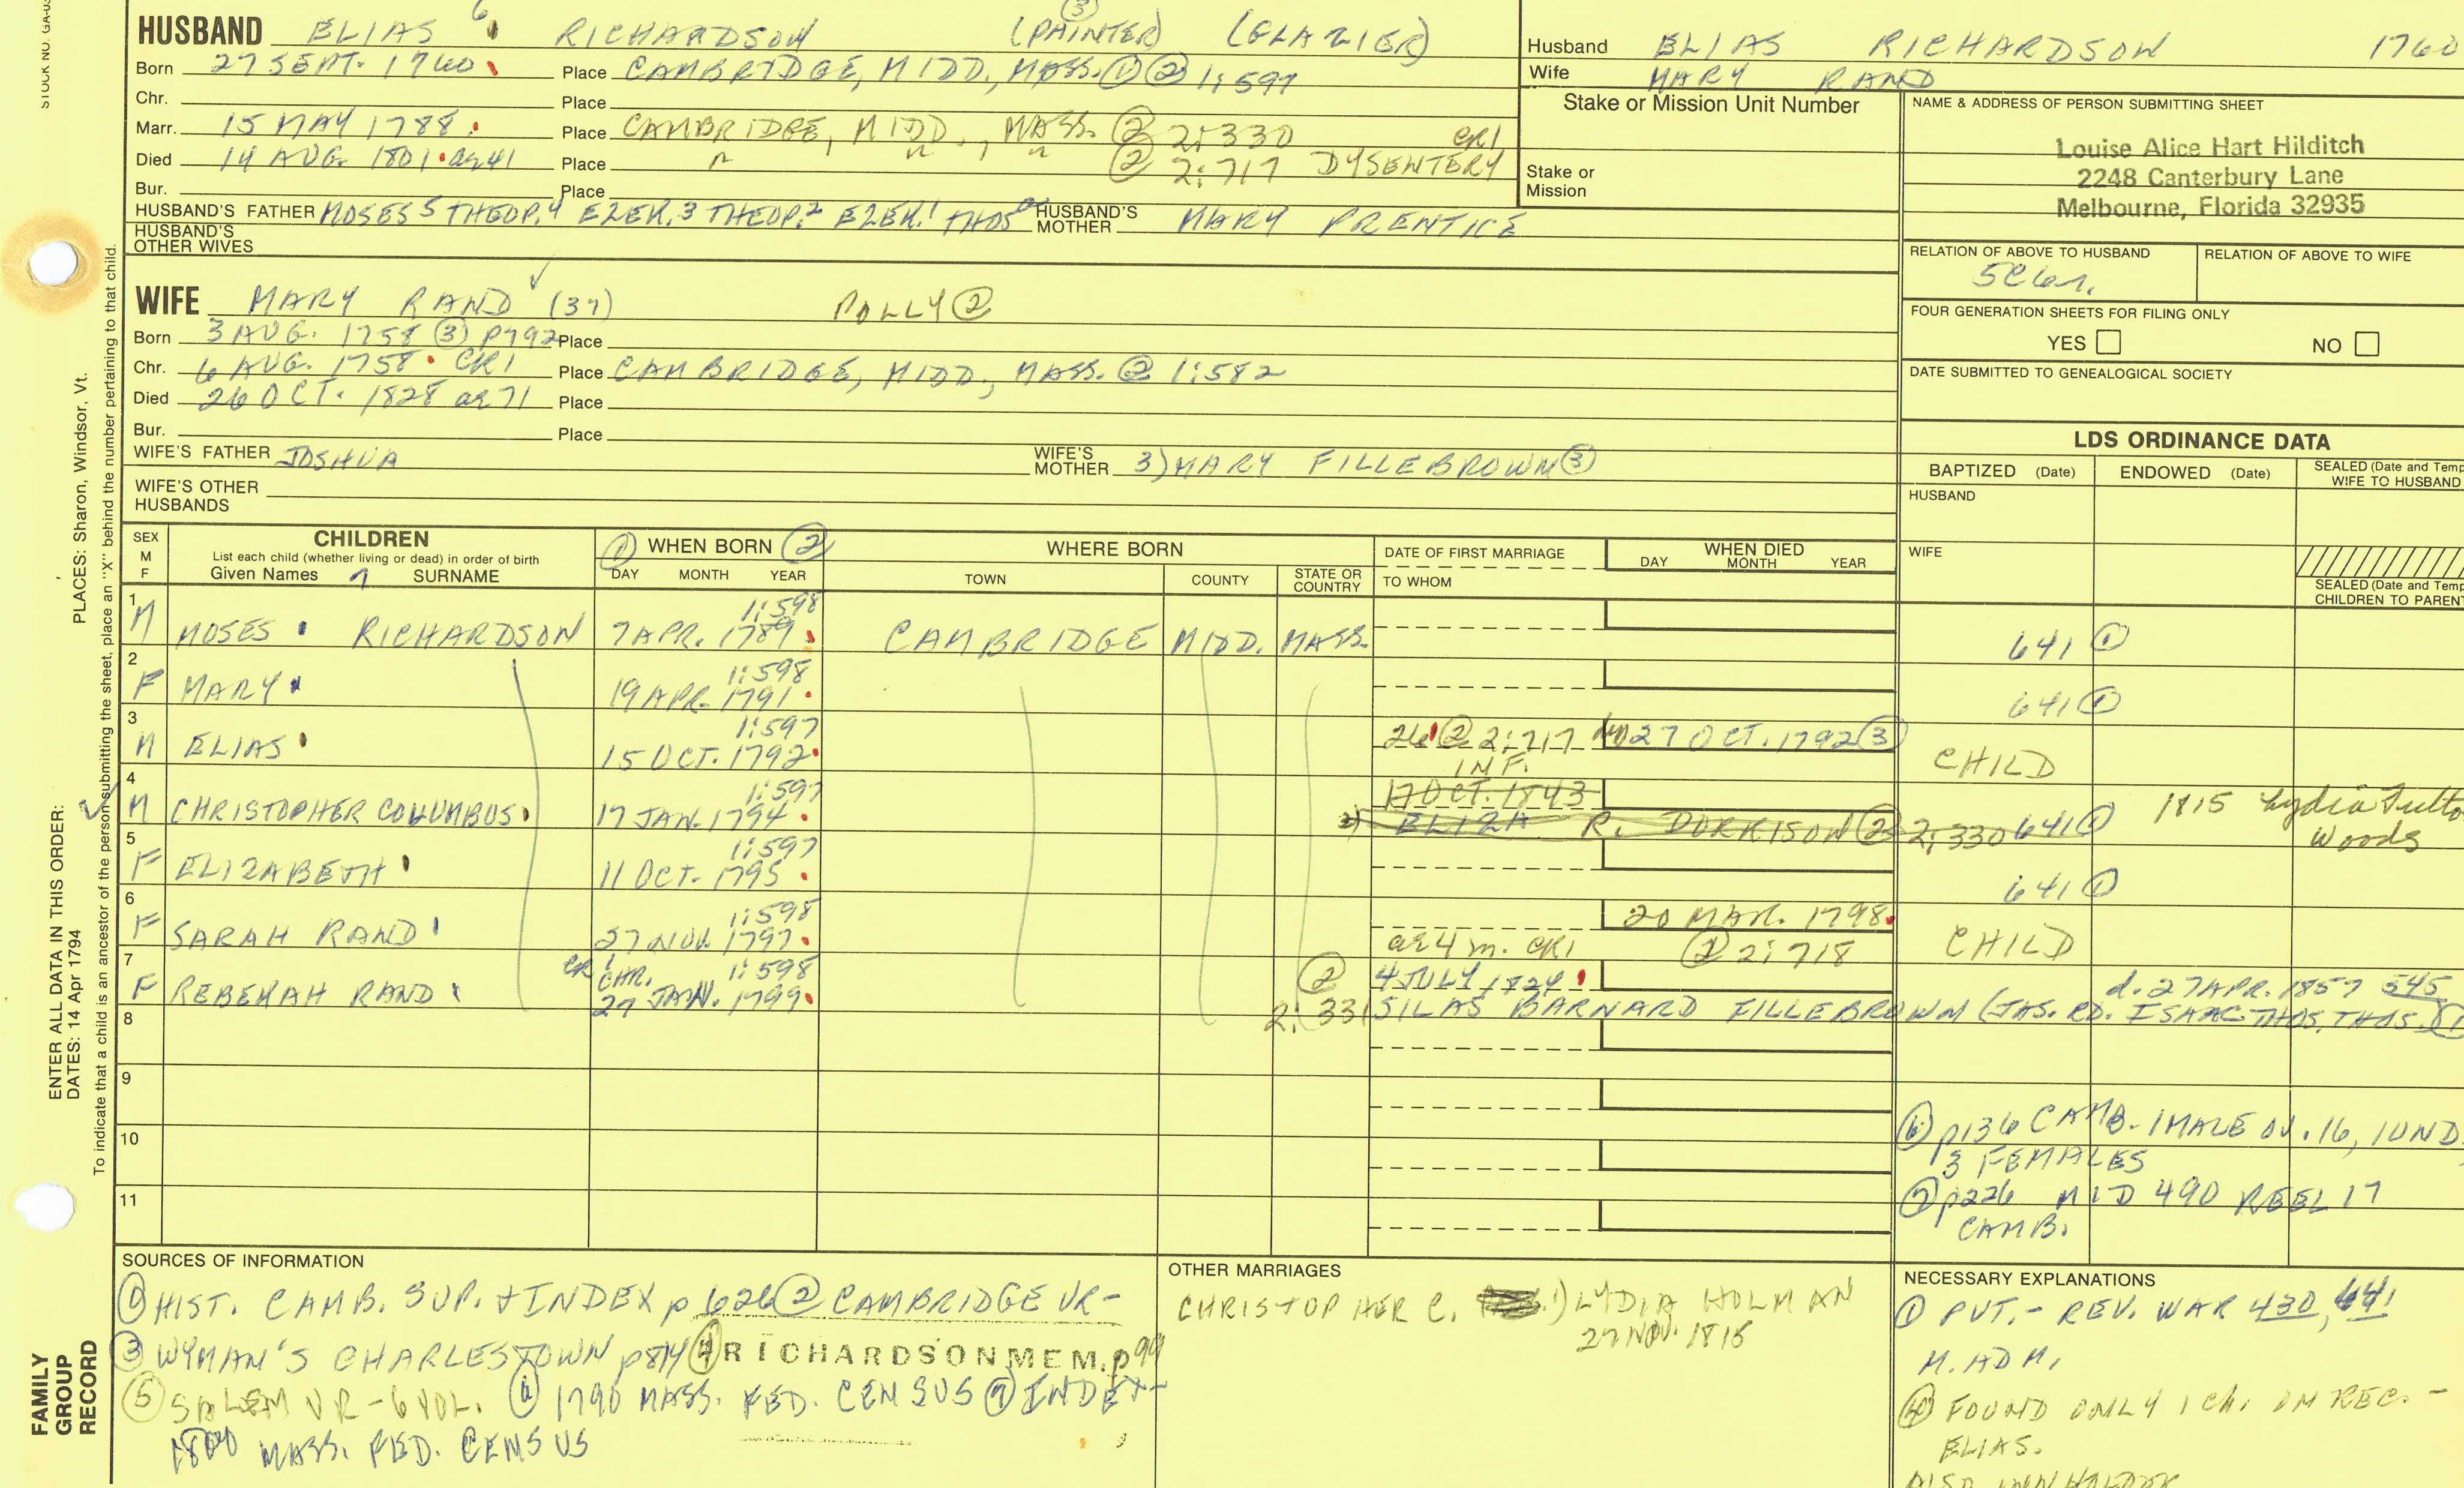 STOCK NO. GA-0
HUSBAND ELIAS 6 RICHARDSON (PAINTER) ③ (GLAZIER)
Born 27 SEPT. 1760 Place CAMBRIDGE, MIDD, MASS. ① ② 1:597
Chr. Place
Marr. 15 MAY 1788 Place CAMBRIDGE, MIDD., MASS. ② 2:330 CR1
Died 14 AUG. 1801 ae41 Place " " " ② 2:717 DYSENTERY
Bur. Place
HUSBAND'S FATHER MOSES 5 THEOP. 4 EZEK. 3 THEOP. 2 EZEK. 1 THOS 0 HUSBAND'S MOTHER MARY PRENTICE
HUSBAND'S OTHER WIVES
Husband ELIAS RICHARDSON 1760
Wife MARY RAND
Stake or Mission Unit Number
Stake or Mission
NAME & ADDRESS OF PERSON SUBMITTING SHEET
Louise Alice Hart Hilditch
2248 Canterbury Lane
Melbourne, Florida 32935
RELATION OF ABOVE TO HUSBAND RELATION OF ABOVE TO WIFE
5C6r.
WIFE MARY RAND ✓ (37) POLLY ②
Born 3 AUG. 1758 ③ P792 Place
Chr. 6 AUG. 1758 CR1 Place CAMBRIDGE, MIDD., MASS. ② 1:582
Died 26 OCT. 1828 ae71 Place
Bur. Place
WIFE'S FATHER JOSHUA WIFE'S MOTHER 3) MARY FILLEBROWN ③
WIFE'S OTHER HUSBANDS
FOUR GENERATION SHEETS FOR FILING ONLY
YES NO
DATE SUBMITTED TO GENEALOGICAL SOCIETY
LDS ORDINANCE DATA
BAPTIZED (Date) ENDOWED (Date) SEALED (Date and Temp
WIFE TO HUSBAND
HUSBAND
WIFE
SEALED (Date and Temp
CHILDREN TO PAREN
SEX M F
CHILDREN
List each child (whether living or dead) in order of birth
Given Names 7 SURNAME
① WHEN BORN ②
DAY MONTH YEAR
WHERE BORN
TOWN COUNTY STATE OR COUNTRY
DATE OF FIRST MARRIAGE
TO WHOM
WHEN DIED
DAY MONTH YEAR
1 M MOSES RICHARDSON 1:598 7 APR. 1789 CAMBRIDGE MIDD. MASS. 641 ①
2 F MARY 1:598 19 APR. 1791 641 ①
3 M ELIAS 1:597 15 OCT. 1792 26 ② 2:717 27 OCT. 1792 ③ INF. CHILD
4 ✓ M CHRISTOPHER COLUMBUS 1:597 17 JAN. 1794 17 OCT. 1843
2) ELIZA R. DORKISON ② 2:330 641 ① 1815 Lydia Fulto
Woods
5 F ELIZABETH 1:597 11 OCT. 1795 641 ①
6 F SARAH RAND 1:598 27 NOV. 1797 20 MAR. 1798
ae 4 m. CR1 ② 2:718 CHILD
7 F REBEKAH RAND CR1 CHR. 1:598 27 JAN. 1799 ② 4 JULY 1824 d. 27 APR. 1857 545
2:331 SILAS BARNARD FILLEBROWN (JAS. ED. ISAAC THOS. THOS. ①
8
9
10
11
⑥ p136 CAMB. 1 MALE OV. 16, 1 UND.
3 FEMALES
⑦ p226 MID 490 REEL 17
CAMB.
SOURCES OF INFORMATION
① HIST. CAMB. SUP. & INDEX p 626 ② CAMBRIDGE VR-
③ WYMAN'S CHARLESTOWN p814 ④ RICHARDSON MEM. p 99
⑤ SALEM VR - 6 VOL. ⑥ 1790 MASS. FED. CENSUS ⑦ INDEX-
1800 MASS. FED. CENSUS
OTHER MARRIAGES
CHRISTOPHER C. 1) LYDIA HOLMAN
27 NOV. 1815
NECESSARY EXPLANATIONS
① PVT. - REV. WAR 430, 641
M. ADM.
④ FOUND ONLY 1 CH. ON REC. -
ELIAS.
ENTER ALL DATA IN THIS ORDER:
DATES: 14 Apr 1794 PLACES: Sharon, Windsor, Vt.
To indicate that a child is an ancestor of the person submitting the sheet, place an "X" behind the number pertaining to that child.
FAMILY
GROUP
RECORD